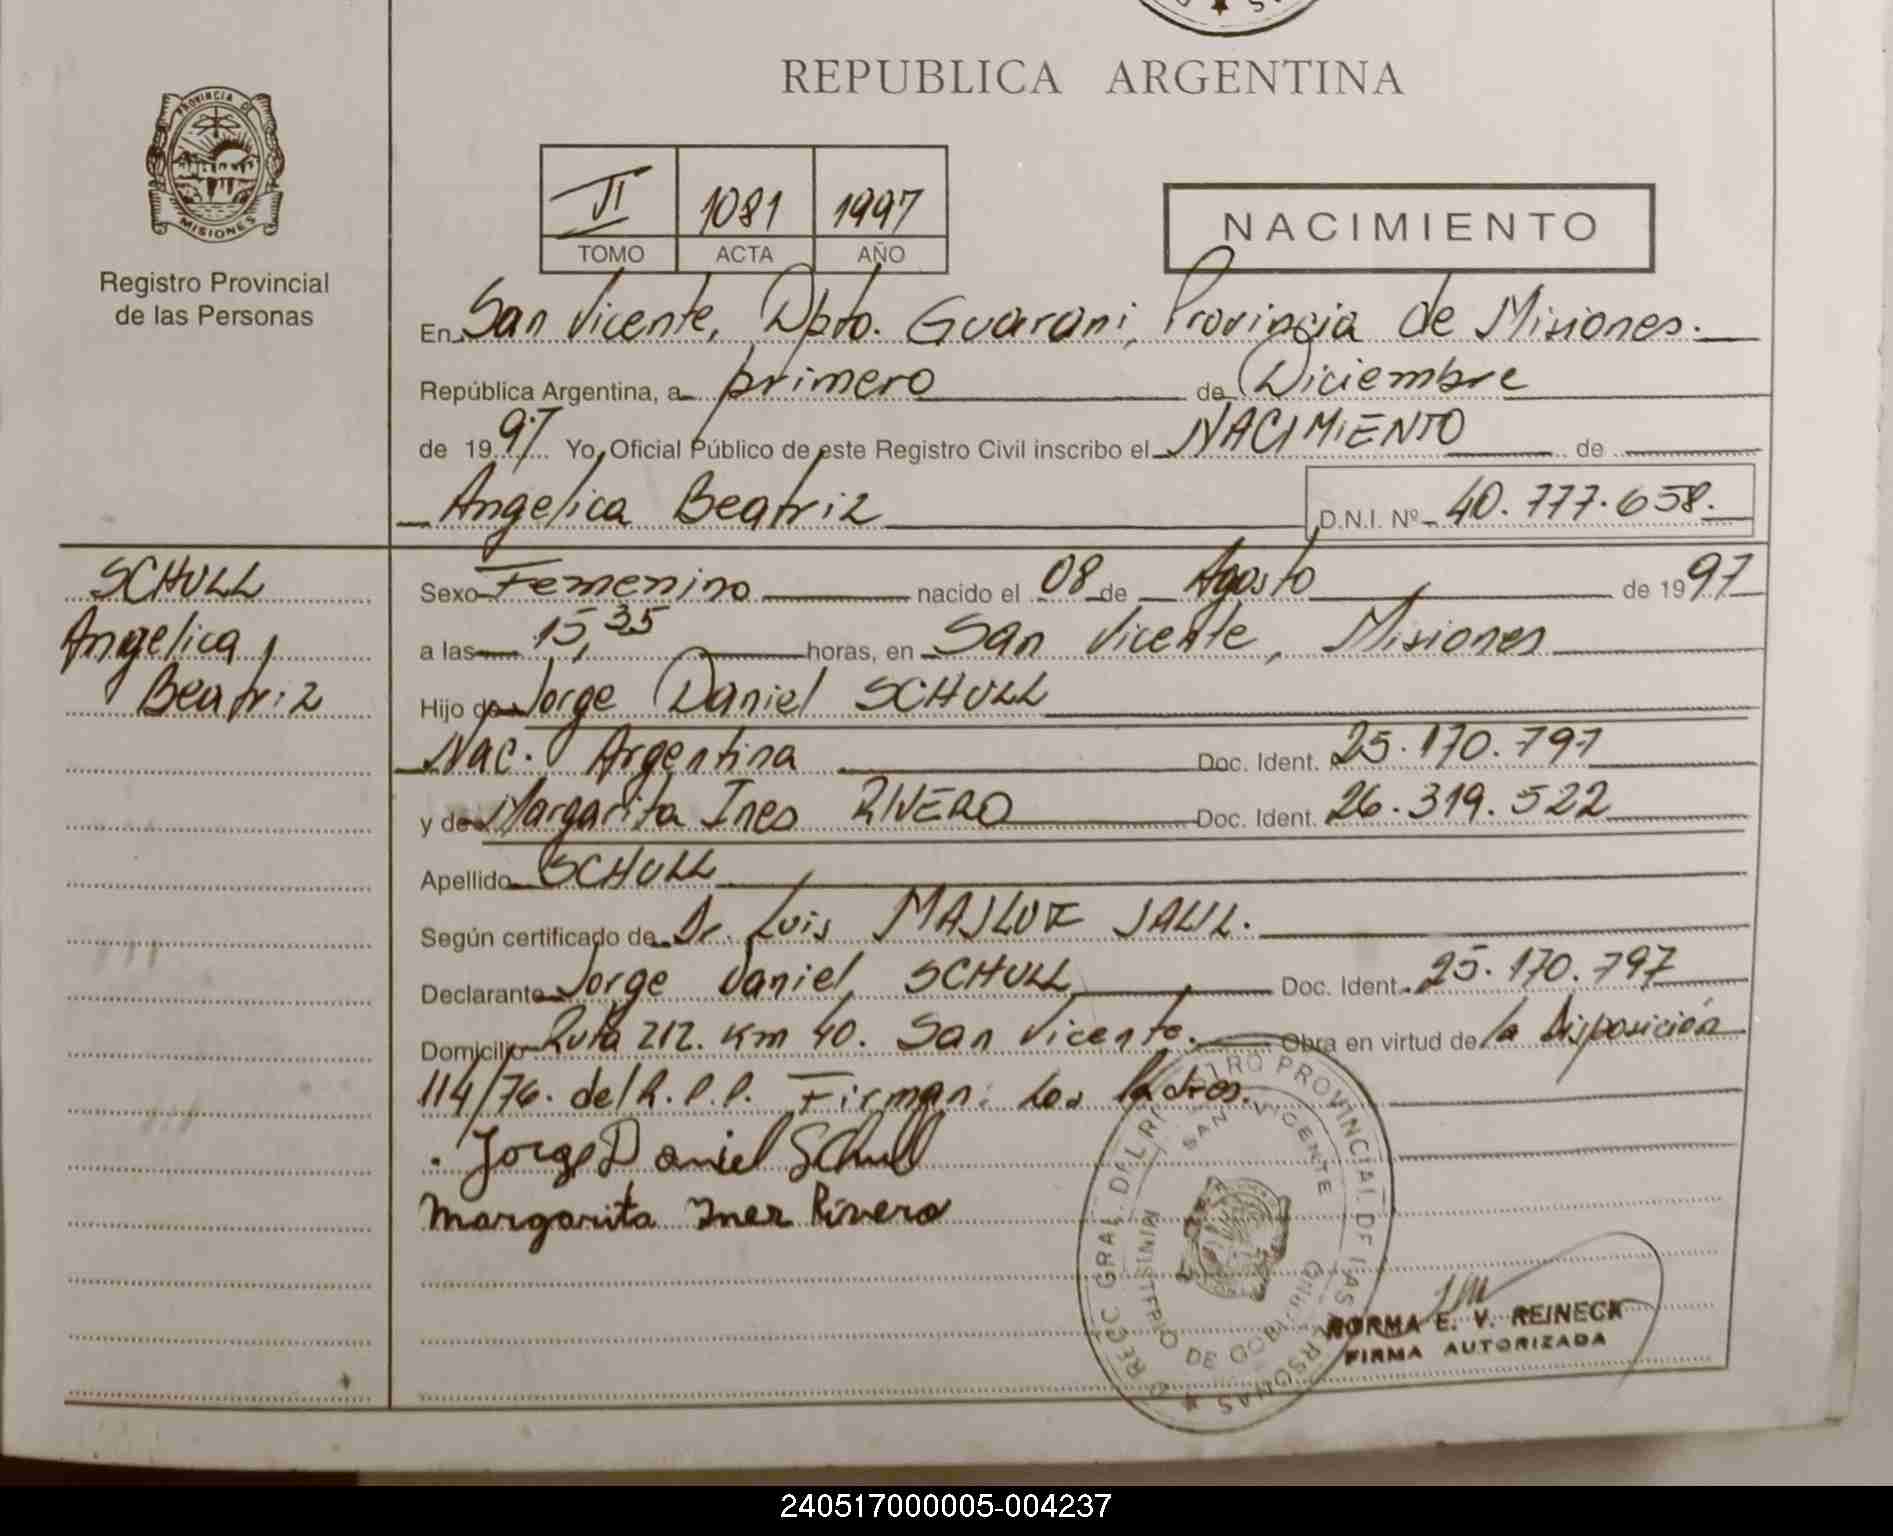 REPUBLICA ARGENTINA
PROVINCIA DE
MISIONES
Registro Provincial
de las Personas
VI 1081 1997
TOMO ACTA AÑO
NACIMIENTO
En San Vicente, Dpto. Guarani, Provincia de Misiones.
República Argentina, a primero de Diciembre
de 1997 Yo, Oficial Público de este Registro Civil inscribo el NACIMIENTO de
Angelica Beatriz D.N.I. Nº 40.777.658.
SCHULL
Angelica
Beatriz
Sexo Femenino nacido el 08 de Agosto de 1997
a las 15,35 horas, en San Vicente, Misiones
Hijo de Jorge Daniel SCHULL
Nac. Argentina Doc. Ident. 25.170.797
y de Margarita Ines RIVERO Doc. Ident. 26.319.522
Apellido SCHULL
Según certificado de Dr. Luis MASLUF JALIL.
Declarante Jorge Daniel SCHULL Doc. Ident. 25.170.797
Domicilio Ruta 212. Km 40. San Vicente. Obra en virtud de la Disposición
114/76. del R.P.P. Firman: Los Padres.
Jorge Daniel Schull
Margarita Ines Rivero
REGISTRO PROVINCIAL DE LAS PERSONAS
SAN VICENTE
MINISTERIO DE GOBIERNO
NORMA E. V. REINECK
FIRMA AUTORIZADA
240517000005-004237